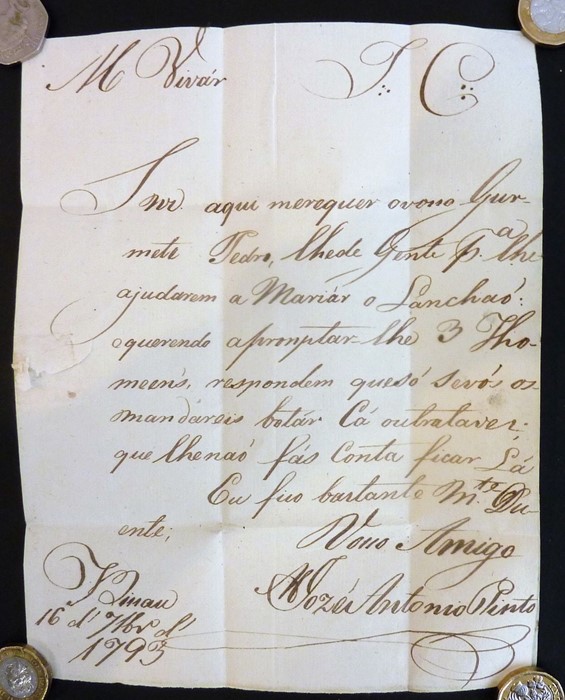 M Vivár J. C.
Snr. aqui merequer ovono Gur-
mete Pedro, lhede Gente p.ª lhe
ajudarem a Mariár o Lanchaó:
oquerendo apromptar-lhe 3 Tho-
meens, respondem quesó sevós os
mandáreis botár Cá outravez:
que lhenaó fás Conta ficar Lá
Eu fico bastante M.to Du-
ente;
Voso Amigo
Jozés António Pinto
16 d' 7br d'
1793